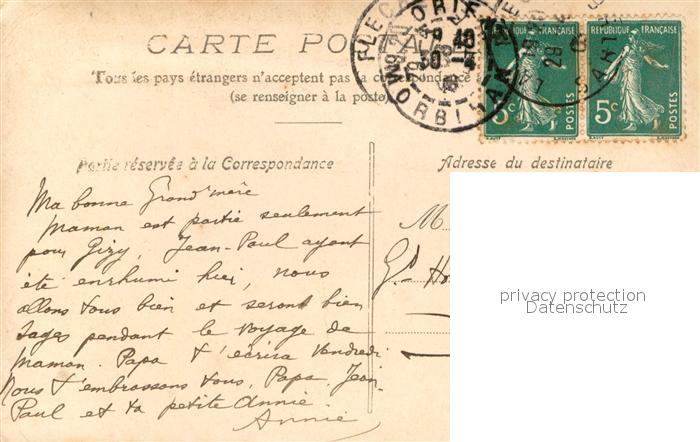 CARTE POSTALE
Tous les pays étrangers n'acceptent pas la correspondance
(se renseigner à la poste)
Partie réservée à la Correspondance
Adresse du destinataire
LORIENT
MORBIHAN
30-4
SARTHE
29
REPUBLIQUE FRANÇAISE
5c
POSTES
REPUBLIQUE FRANÇAISE
5c
POSTES
Ma bonne Grand'mère
Maman est partie seulement
pour Gizy, Jean-Paul ayant
été enrhumé hier, nous
allons tous bien et seront bien
sages pendant le voyage de
Maman. Papa t'écrira Vendredi
Nous t'embrassons tous, Papa, Jean-
Paul et ta petite Annie.
Annie
M
Gd Ho
privacy protection
Datenschutz